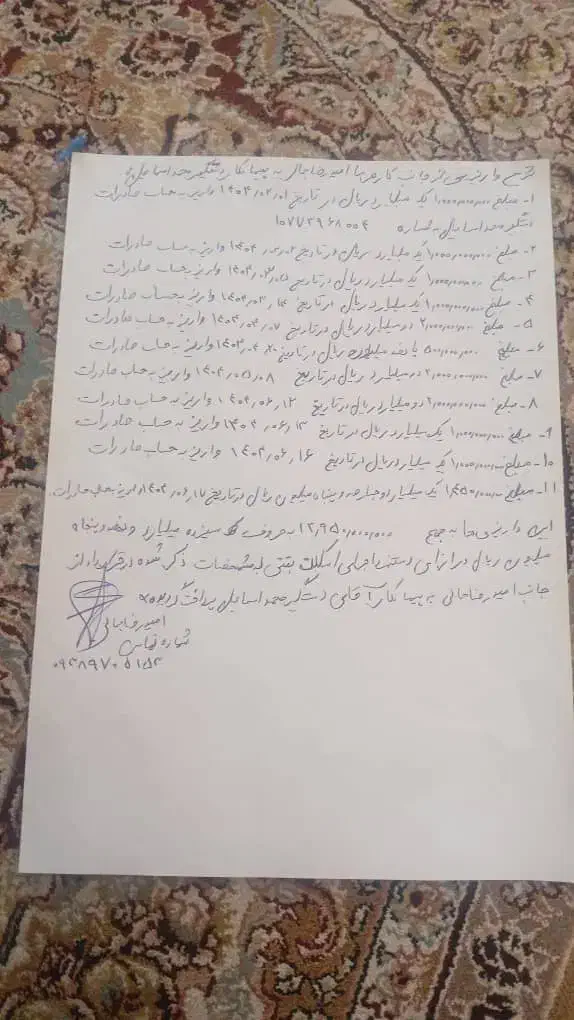 شرح واریزی از جانب کارفرما امیررضا جمالی به پیمانکار دستگیر محمد اسماعیل
۱- مبلغ ۱,۰۰۰,۰۰۰,۰۰۰ یک میلیارد ریال در تاریخ ۱۴۰۴,۰۲,۰۱ واریز به حساب صادرات
دستگیر محمد اسماعیل به شماره ۱۰۷۷۲۹۶۸۰۰۴
۲- مبلغ ۱,۰۰۰,۰۰۰,۰۰۰ یک میلیارد ریال در تاریخ واریز به حساب صادرات
۳- مبلغ ۱,۰۰۰,۰۰۰,۰۰۰ یک میلیارد ریال در تاریخ واریز به حساب صادرات
۴- مبلغ ۱,۰۰۰,۰۰۰,۰۰۰ یک میلیارد ریال در تاریخ واریز به حساب صادرات
۵- مبلغ ۲,۰۰۰,۰۰۰,۰۰۰ دو میلیارد ریال در تاریخ ۱۴۰۴,۰۴,۰۷ واریز به حساب صادرات
۶- مبلغ ۵۰۰,۰۰۰,۰۰۰ پانصد میلیون ریال در تاریخ واریز به حساب صادرات
۷- مبلغ ۲,۰۰۰,۰۰۰,۰۰۰ دو میلیارد ریال در تاریخ ۱۴۰۴,۰۵,۰۸ واریز به حساب صادرات
۸- مبلغ دو میلیارد ریال در تاریخ ۱۴۰۴,۰۶,۱۲ واریز به حساب صادرات
۹- مبلغ ۱,۰۰۰,۰۰۰,۰۰۰ یک میلیارد ریال در تاریخ ۱۴۰۴,۰۶,۱۳ واریز به حساب صادرات
۱۰- مبلغ ۱,۰۰۰,۰۰۰,۰۰۰ یک میلیارد ریال در تاریخ ۱۴۰۴,۰۶,۱۶ واریز به حساب صادرات
۱۱- مبلغ ۱,۴۵۰,۰۰۰,۰۰۰ یک میلیارد و چهارصد و پنجاه میلیون ریال در تاریخ ۱۴۰۴,۰۶,۱۷ واریز به حساب صادرات
این واریزی ها به جمع ۱۳,۹۵۰,۰۰۰,۰۰۰ به حروف سیزده میلیارد و نهصد و پنجاه
میلیون ریال در ازای دستمزد اجرای اسکلت بتنی با مشخصات ذکر شده در قرارداد از
جانب امیررضا جمالی به پیمانکار آقای دستگیر محمد اسماعیل پرداخت گردیده
امیررضا جمالی
شماره تماس